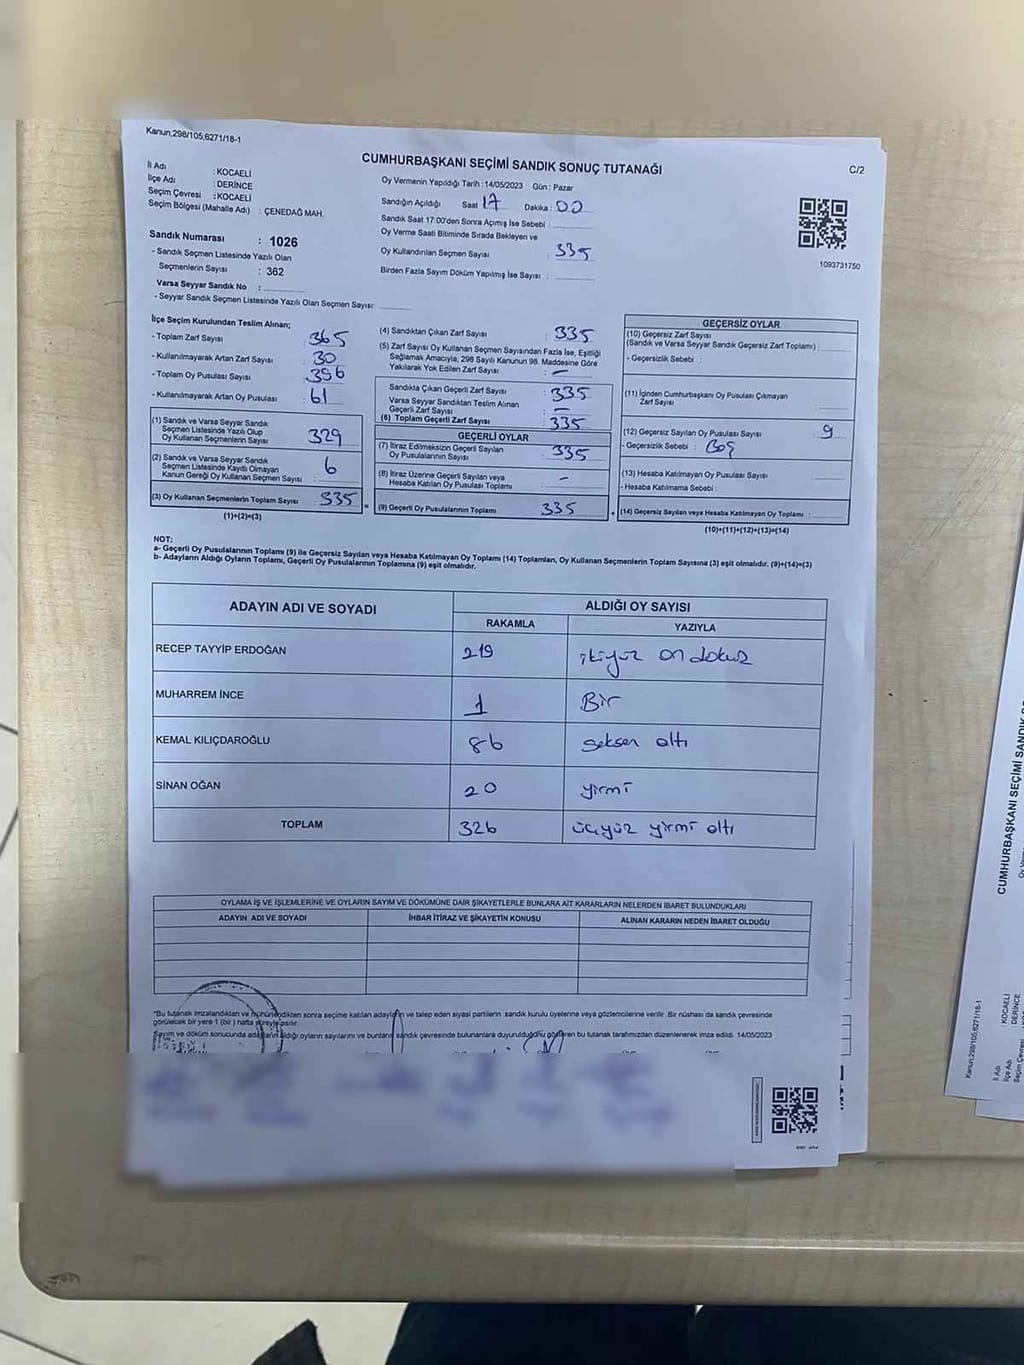 Kanun;298/105,6271/18-1
CUMHURBAŞKANI SEÇİMİ SANDIK SONUÇ TUTANAĞI
C/2
İl Adı : KOCAELİ
İlçe Adı : DERİNCE
Seçim Çevresi : KOCAELİ
Seçim Bölgesi (Mahalle Adı) : ÇENEDAĞ MAH.
Sandık Numarası : 1026
- Sandık Seçmen Listesinde Yazılı Olan
Seçmenlerin Sayısı : 362
Varsa Seyyar Sandık No :
- Seyyar Sandık Seçmen Listesinde Yazılı Olan Seçmen Sayısı:
Oy Vermenin Yapıldığı Tarih : 14/05/2023 Gün : Pazar
Sandığın Açıldığı Saat 17 Dakika : 00
Sandık Saat 17:00'den Sonra Açımış İse Sebebi :
Oy Verme Saati Bitiminde Sırada Bekleyen ve
Oy Kullandırılan Seçmen Sayısı : 335
Birden Fazla Sayım Döküm Yapılmış İse Sayısı :
1093731750
İlçe Seçim Kurulundan Teslim Alınan;
- Toplam Zarf Sayısı : 365
- Kullanılmayarak Artan Zarf Sayısı : 30
- Toplam Oy Pusulası Sayısı : 396
- Kullanılmayarak Artan Oy Pusulası : 61
(1) Sandık ve Varsa Seyyar Sandık
Seçmen Listesinde Yazılı Olup
Oy Kullanan Seçmenlerin Sayısı : 329
(2) Sandık ve Varsa Seyyar Sandık
Seçmen Listesinde Kayıtlı Olmayan
Kanun Gereği Oy Kullanan Seçmen Sayısı : 6
(3) Oy Kullanan Seçmenlerin Toplam Sayısı 335
(1)+(2)=(3)
(4) Sandıktan Çıkan Zarf Sayısı : 335
(5) Zarf Sayısı Oy Kullanan Seçmen Sayısından Fazla İse, Eşitliği
Sağlamak Amacıyla, 298 Sayılı Kanunun 98. Maddesine Göre
Yakılarak Yok Edilen Zarf Sayısı : –
Sandıkta Çıkan Geçerli Zarf Sayısı : 335
Varsa Seyyar Sandıktan Teslim Alınan
Geçerli Zarf Sayısı : –
(6) Toplam Geçerli Zarf Sayısı : 335
GEÇERLİ OYLAR
(7) İtiraz Edilmeksizin Geçerli Sayılan
Oy Pusulalarının Sayısı : 335
(8) İtiraz Üzerine Geçerli Sayılan veya
Hesaba Katılan Oy Pusulası Toplamı : –
(9) Geçerli Oy Pusulalarının Toplamı 335
GEÇERSİZ OYLAR
(10) Geçersiz Zarf Sayısı
(Sandık ve Varsa Seyyar Sandık Geçersiz Zarf Toplamı) :
- Geçersizlik Sebebi :
(11) İçinden Cumhurbaşkanı Oy Pusulası Çıkmayan
Zarf Sayısı :
(12) Geçersiz Sayılan Oy Pusulası Sayısı : 9
- Geçersizlik Sebebi : Boş
(13) Hesaba Katılmayan Oy Pusulası Sayısı :
- Hesaba Katılmama Sebebi :
(14) Geçersiz Sayılan veya Hesaba Katılmayan Oy Toplamı :
(10)+(11)+(12)+(13)=(14)
NOT:
a- Geçerli Oy Pusulalarının Toplamı (9) ile Geçersiz Sayılan veya Hesaba Katılmayan Oy Toplamı (14) Toplamları, Oy Kullanan Seçmenlerin Toplam Sayısına (3) eşit olmalıdır. (9)+(14)=(3)
b- Adayların Aldığı Oyların Toplamı, Geçerli Oy Pusulalarının Toplamına (9) eşit olmalıdır.
ADAYIN ADI VE SOYADI
ALDIĞI OY SAYISI
RAKAMLA YAZIYLA
RECEP TAYYİP ERDOĞAN 219 ikiyüz on dokuz
MUHARREM İNCE 1 Bir
KEMAL KILIÇDAROĞLU 86 seksen altı
SİNAN OĞAN 20 yirmi
TOPLAM 326 üçyüz yirmi altı
OYLAMA İŞ VE İŞLEMLERİNE VE OYLARIN SAYIM VE DÖKÜMÜNE DAİR ŞİKAYETLERLE BUNLARA AİT KARARLARIN NELERDEN İBARET BULUNDUKLARI
ADAYIN ADI VE SOYADI İHBAR İTİRAZ VE ŞİKAYETİN KONUSU ALINAN KARARIN NEDEN İBARET OLDUĞU
*Bu tutanak imzalandıktan ve mühürlendikten sonra seçime katılan adayların ve talep eden siyasi partilerin sandık kurulu üyelerine veya gözlemcilerine verilir. Bir nüshası da sandık çevresinde
görülecek bir yere 1 (bir ) hafta süreyle asılır.
Sayım ve döküm sonucunda adayların aldığı oyların sayılarını ve bunların sandık çevresinde bulunanlara duyurulduğunu gösteren bu tutanak tarafımızdan düzenlenerek imza edildi. 14/05/2023
CUMHURBAŞKANI SEÇİMİ SANDIK
Kanun;298/105,6271/18-1
İl Adı : KOCAELİ
İlçe Adı : DERİNCE
Seçim Çevresi